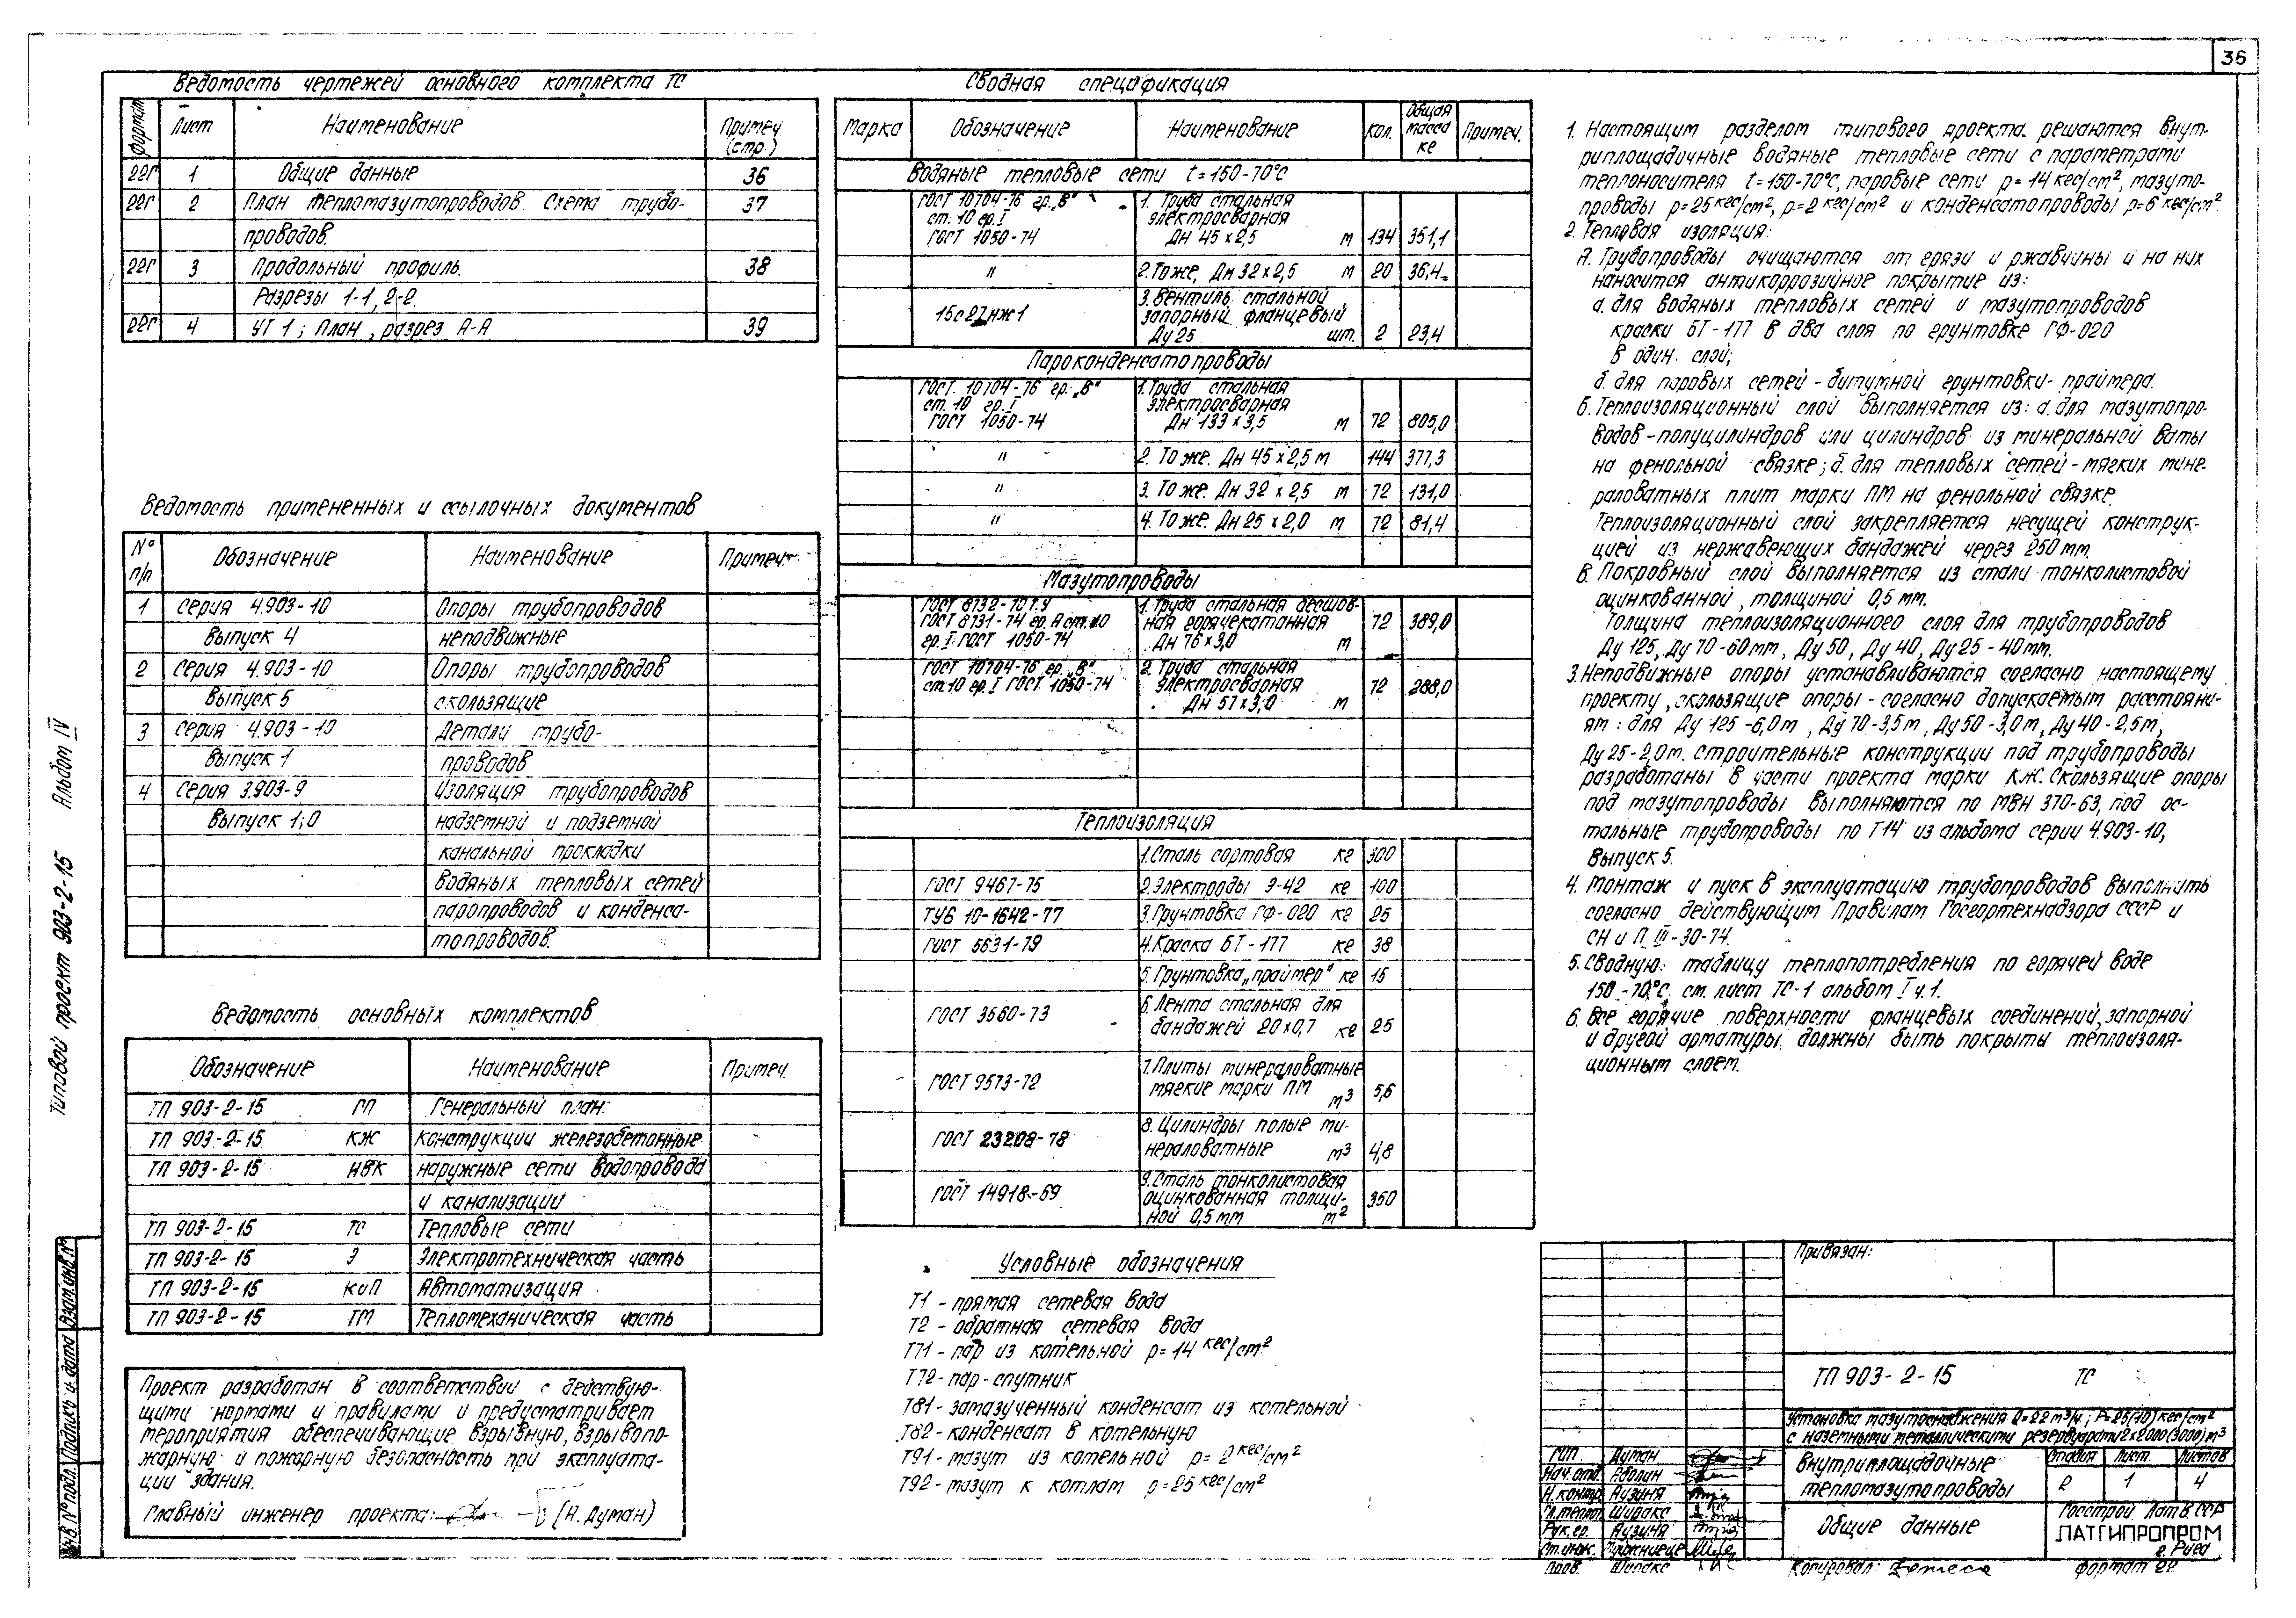 36
Ведомость чертежей основного комплекта ТС
Формат
Лист
Наименование
Примеч. (стр.)
22Г 1 Общие данные 36
22Г 2 План тепломазутопроводов. Схема трубо- 37
проводов.
22Г 3 Продольный профиль. 38
Разрезы 1-1, 2-2.
22Г 4 УТ 1; План, разрез А-А 39
Ведомость примененных и ссылочных документов
№ п/п
Обозначение
Наименование
Примеч.
1 Серия 4.903-10 Опоры трубопроводов
Выпуск 4 неподвижные
2 Серия 4.903-10 Опоры трубопроводов
Выпуск 5 скользящие
3 Серия 4.903-10 Детали трубо-
Выпуск 1 проводов
4 Серия 3.903-9 Изоляция трубопроводов
Выпуск 1;0 надземной и подземной
канальной прокладки
водяных тепловых сетей
паропроводов и конденса-
топроводов.
Ведомость основных комплектов
Обозначение
Наименование
Примеч.
ТП 903-2-15 ГП Генеральный план.
ТП 903-2-15 КЖ Конструкции железобетонные
ТП 903-2-15 НВК Наружные сети водопровода
и канализации
ТП 903-2-15 ТС Тепловые сети
ТП 903-2-15 Э Электротехническая часть
ТП 903-2-15 КиП Автоматизация
ТП 903-2-15 ТМ Тепломеханическая часть
Проект разработан в соответствии с действую-
щими нормами и правилами и предусматривает
мероприятия обеспечивающие взрывную, взрывопо-
жарную и пожарную безопасность при эксплуата-
ции здания.
Главный инженер проекта: (А. Думан)
Сводная спецификация
Марка
Обозначение
Наименование
Кол.
Общая масса кг
Примеч.
Водяные тепловые сети t=150-70°C
ГОСТ 10704-76 гр. „В" 1. Труба стальная
ст. 10 гр. I электросварная
ГОСТ 1050-74 Дн 45 х 2,5 м 134 351,1
" 2. То же, Дн 32 х 2,5 м 20 36,4
3. Вентиль стальной
15с27нж1 запорный фланцевый
Ду 25 шт. 2 23,4
Пароконденсатопроводы
ГОСТ. 10704-76 гр. „В" 1. Труба стальная
ст. 10 гр. I электросварная
ГОСТ 1050-74 Дн 133 х 3,5 м 72 805,0
" 2. То же. Дн 45 х 2,5 м 144 377,3
" 3. То же. Дн 32 х 2,5 м 72 131,0
" 4. То же. Дн 25 х 2,0 м 72 81,4
Мазутопроводы
ГОСТ 8732-70 Г.У 1. Труба стальная бесшов-
ГОСТ 8731-74 гр. А ст. 10 ная горячекатанная 72 389,0
гр. I ГОСТ 1050-74 Дн 76 х 3,0 м
ГОСТ 10704-76 гр. „В" 2. Труба стальная
ст. 10 гр. I ГОСТ 1050-74 электросварная 72 288,0
Дн 57 х 3,0 м
Теплоизоляция
1. Сталь сортовая кг 300
ГОСТ 9467-75 2. Электроды Э-42 кг 100
ТУ6 10-1642-77 3. Грунтовка ГФ-020 кг 25
ГОСТ 5631-79 4. Краска БТ-177 кг 38
5. Грунтовка „праймер" кг 15
6. Лента стальная для
ГОСТ 3560-73 бандажей 20х0,7 кг 25
7. Плиты минераловатные
ГОСТ 9573-72 мягкие марки ПМ м³ 5,6
8. Цилиндры полые ми-
ГОСТ 23208-78 нераловатные м³ 4,8
9. Сталь тонколистовая
ГОСТ 14918-69 оцинкованная толщи- 350
ной 0,5 мм м²
Условные обозначения
Т1 - прямая сетевая вода
Т2 - обратная сетевая вода
Т71 - пар из котельной р=14 кгс/см²
Т72 - пар-спутник
Т81 - замазученный конденсат из котельной
Т82 - конденсат в котельную
Т91 - мазут из котельной р= 2 кгс/см²
Т92 - мазут к котлам р=25 кгс/см²
1. Настоящим разделом типового проекта решаются внут-
риплощадочные водяные тепловые сети с параметрами
теплоносителя t=150-70°C, паровые сети р=14 кгс/см², мазуто-
проводы р=25 кгс/см², р=2 кгс/см² и конденсатопроводы р=6 кгс/см².
2. Тепловая изоляция:
А. Трубопроводы очищаются от грязи и ржавчины и на них
наносится антикоррозийное покрытие из:
а. для водяных тепловых сетей и мазутопроводов
краски БТ-177 в два слоя по грунтовке ГФ-020
в один слой;
б. для паровых сетей - битумной грунтовки-праймера.
Б. Теплоизоляционный слой выполняется из: а. для мазутопро-
водов - полуцилиндров или цилиндров из минеральной ваты
на фенольной связке; б. для тепловых сетей - мягких мине-
раловатных плит марки ПМ на фенольной связке.
Теплоизоляционный слой закрепляется несущей конструк-
цией из нержавеющих бандажей через 250 мм.
В. Покровный слой выполняется из стали тонколистовой
оцинкованной, толщиной 0,5 мм.
Толщина теплоизоляционного слоя для трубопроводов
Ду 125, Ду 70-60 мм, Ду 50, Ду 40, Ду 25 - 40 мм.
3. Неподвижные опоры устанавливаются согласно настоящему
проекту, скользящие опоры - согласно допускаемым расстояни-
ям: для Ду 125 - 6,0 м, Ду 70 - 3,5 м, Ду 50 - 3,0 м, Ду 40 - 2,5 м,
Ду 25 - 2,0 м. Строительные конструкции под трубопроводы
разработаны в части проекта марки КЖ. Скользящие опоры
под мазутопроводы выполняются по МВН 370-63, под ос-
тальные трубопроводы по Т14 из альбома серии 4.903-10,
Выпуск 5.
4. Монтаж и пуск в эксплуатацию трубопроводов выполнить
согласно действующим Правилам Госгортехнадзора СССР и
СН и П III-30-74.
5. Сводную таблицу теплопотребления по горячей воде
150-70°C см. лист ТС-1 альбом I ч. 1.
6. Все горячие поверхности фланцевых соединений, запорной
и другой арматуры должны быть покрыты теплоизоля-
ционным слоем.
Привязан:
ТП 903-2-15 ТС
Установка мазутоснабжения Q=22 м³/ч.; Р=25(10) кгс/см²
с наземными металлическими резервуарами 2х2000(3000) м³
ГИП Думан
Нач. отд.
Н. контр. Аузиня
Гл. теплот. Ширакс
Рук. гр. Аузиня
Ст. инж.
Пров. Ширакс
Внутриплощадочные
тепломазутопроводы
Стадия Лист Листов
Р 1 4
Общие данные
Госстрой Латв. ССР
ЛАТГИПРОПРОМ
г. Рига
Копировал:
Формат 22
Типовой проект 903-2-15 Альбом IV
Инв. № подл. Подпись и дата Взам. инв. №